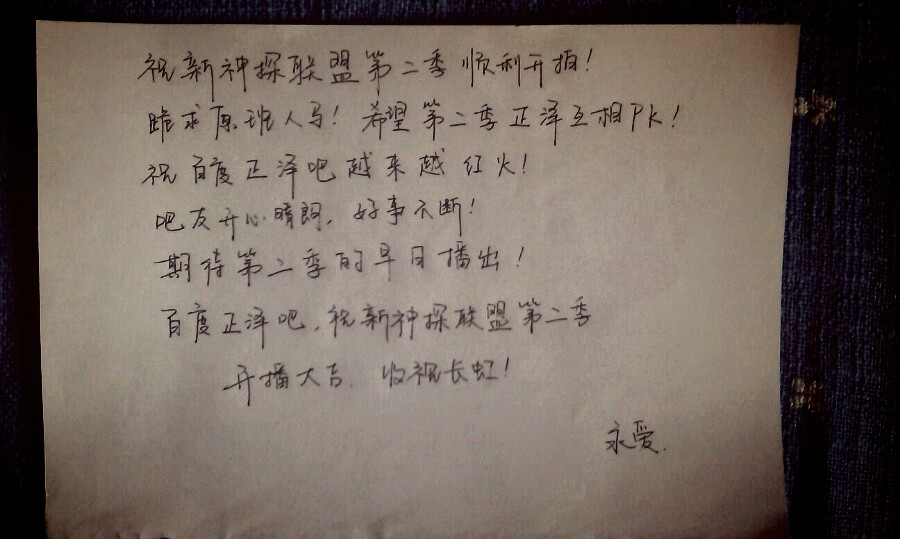 祝新神探联盟第二季顺利开拍!
跪求原班人马! 希望第二季正泽互相PK!
祝百度正泽吧越来越红火!
吧友开心晴朗, 好事不断!
期待第二季的早日播出!
百度正泽吧, 祝新神探联盟第二季
开播大吉. 收视长虹!
永爱.